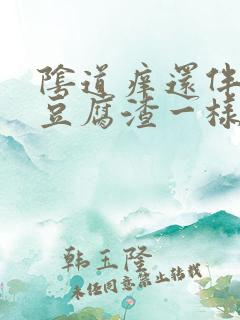 陰道癢還伴
豆腐渣一樣
韩玉隆
未经同意禁止转载